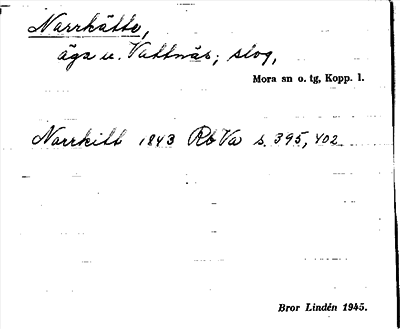 Narrkätte,
ägs u. Vattnäs; skog,
Mora sn o. tg, Kopp. l.
Narrkitt 1843 Rb Va s. 395, 402
Bror Lindén 1945.